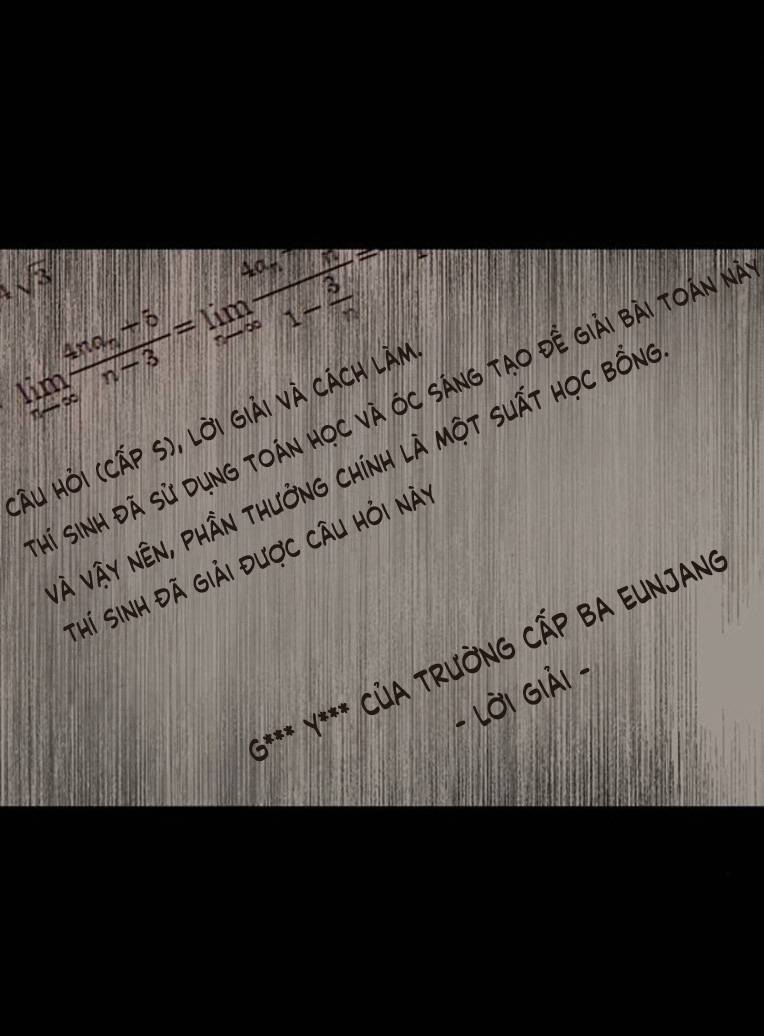 4√3
lim n→∞ (4naₙ − 5)/(n − 3) = lim n→∞ (4aₙ − /n)/(1 − 3/n) =
CÂU HỎI (CẤP S), LỜI GIẢI VÀ CÁCH LÀM.
THÍ SINH ĐÃ SỬ DỤNG TOÁN HỌC VÀ ÓC SÁNG TẠO ĐỂ GIẢI BÀI TOÁN NÀY
VÀ VẬY NÊN, PHẦN THƯỞNG CHÍNH LÀ MỘT SUẤT HỌC BỔNG.
THÍ SINH ĐÃ GIẢI ĐƯỢC CÂU HỎI NÀY
G*** Y*** CỦA TRƯỜNG CẤP BA EUNJANG
- LỜI GIẢI -